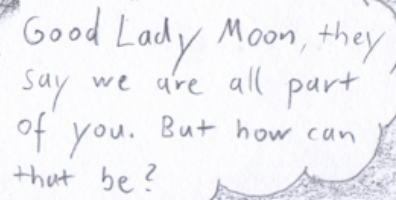 Good Lady Moon, they
say we are all part
of you. But how can
that be?